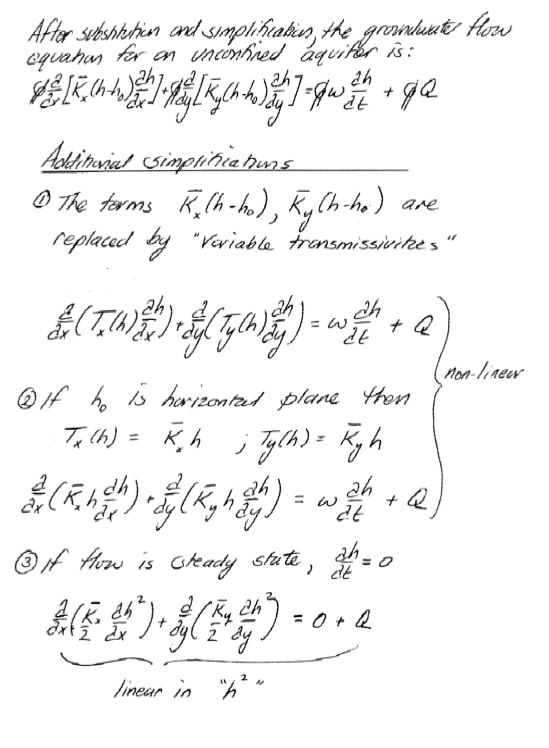 After substitution and simplification, the groundwater flow
equation for an unconfined aquifer is:
ρ ∂/∂x [K̄x(h-h₀) ∂h/∂x] + ρ ∂/∂y [K̄y(h-h₀) ∂h/∂y] = ρω ∂h/∂t + ρQ
Additional simplifications
① The terms K̄x(h-h₀), K̄y(h-h₀) are
replaced by "variable transmissivities"
∂/∂x (Tx(h) ∂h/∂x) + ∂/∂y (Ty(h) ∂h/∂y) = ω ∂h/∂t + Q
non-linear
② If h₀ is horizontal plane then
Tx(h) = K̄x h ; Ty(h) = K̄y h
∂/∂x (K̄x h ∂h/∂x) + ∂/∂y (K̄y h ∂h/∂y) = ω ∂h/∂t + Q
③ If flow is steady state, ∂h/∂t = 0
∂/∂x (K̄x/2 ∂h²/∂x) + ∂/∂y (K̄y/2 ∂h²/∂y) = 0 + Q
linear in "h²"